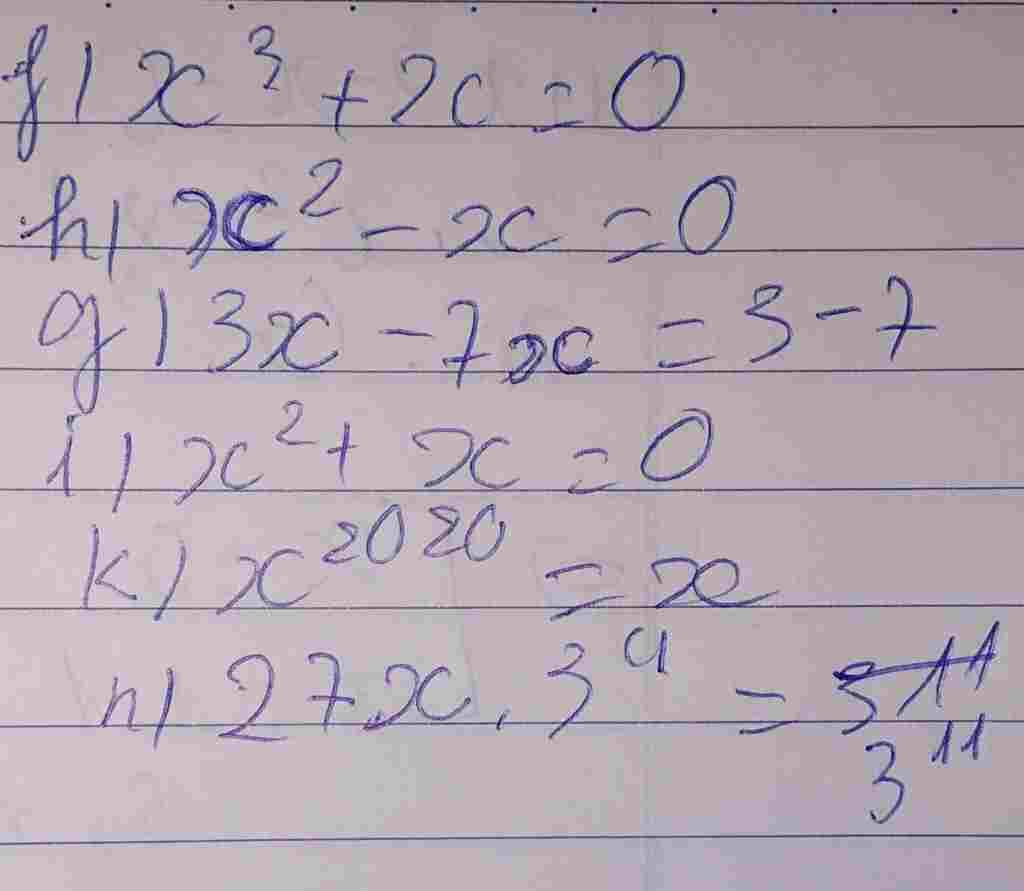 f) x³ + x = 0
h) x² - x = 0
g) 3x - 7x = 3 - 7
i) x² + x = 0
k) x²⁰²⁰ = x
n) 27x . 3⁴ =
3¹¹